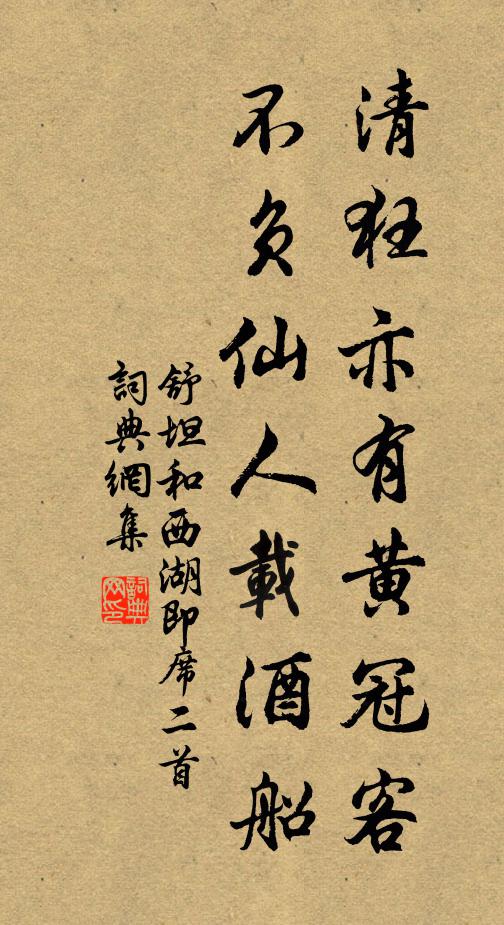 清狂亦有黄冠客
不負仙人載酒船
舒坦和西湖即席二首
詞典網集
詞典網印